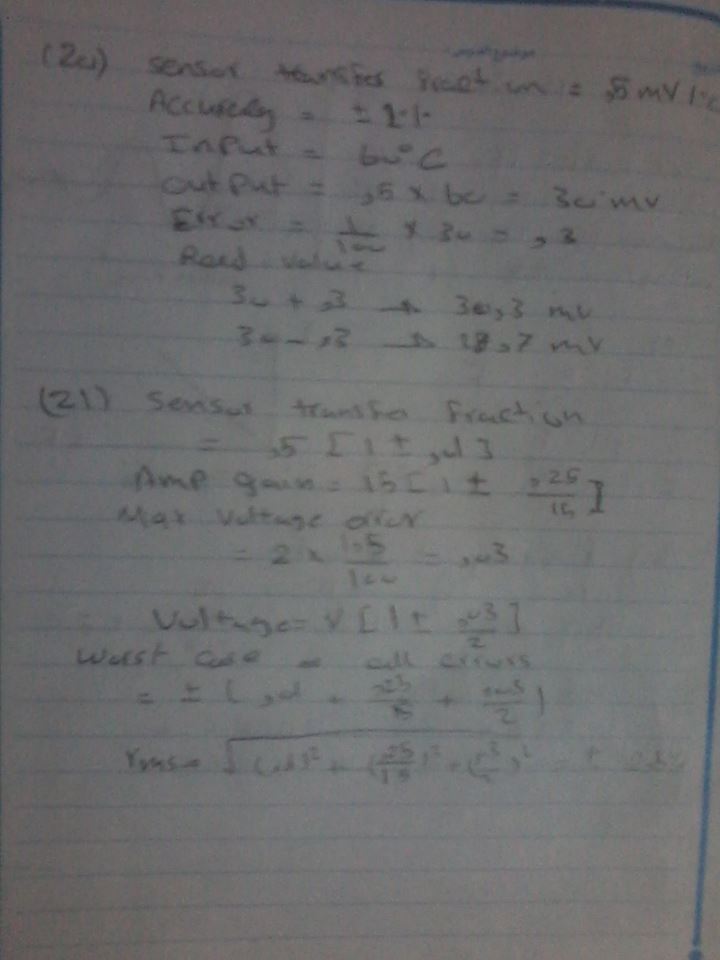 (20) Sensor transfer Fraction = ,5 mV /°C
Accuracy = ± 1.1.
Input = 60° C
Output = ,5 x 60 = 30 mV
Error = 1/100 x 30 = ,3
Read value
30 + ,3 → 30,3 mV
30 - ,3 → 28,7 mV
(21) Sensor transfer Fraction
= ,5 [ 1 ±
Amp gain = 15 [ 1 ± ,25/15 ]
Max Voltage error
= 2 x 1.5/100 = ,03
Voltage = V [ 1 ± ,03/2 ]
Worst case = all errors
= ± (
rms =